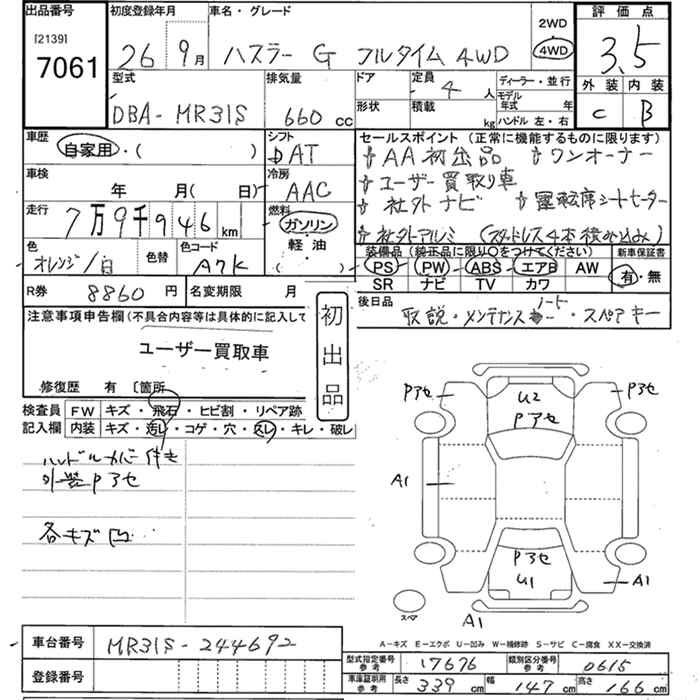 出品番号 初度登録年月 車名・グレード 2WD 評価点
[2139] 7061 26 9月 ハスラー G フルタイム 4WD 4WD 3.5
型式 排気量 ドア 定員 4人 ディーラー・並行 外装 内装
DBA-MR31S 660 cc 形状 積載 kg モデル年式 年 C B
ハンドル 左・右
車歴 シフト セールスポイント (正常に機能するものに限ります)
自家用・( ) DAT AA初出品 ワンオーナー
車検 冷房 ユーザー買取り車
年 月( 日) AAC 社外ナビ 運転席シートヒーター
走行 燃料 社外アルミ (スタッドレス4本積み込み)
7万9千946km ガソリン
色 色替 色コード 軽油・ 装備品 (純正品に限り○をつけてください) 新車保証書
オレンジ/白 A7K ( ) PS PW ABS エアB AW 有・無
SR ナビ TV カワ
R券 8860 円 名変期限 月 後日品
注意事項申告欄(不具合内容等は具体的に記入して 初出品 取説・メンテナンス ・スペアキー
ユーザー買取車
修復歴 有 〔箇所
検査員 FW キズ・飛石・ヒビ割・リペア跡
記入欄 内装 キズ・汚レ・コゲ・穴・スレ・キレ・破レ
ハンドルカバー付き
外装Pアセ
各キズ凹
Pアセ U2 Pアセ
Pアセ
A1 A1
Pアセ
U1 A1
スペア A1
A-キズ E-エクボ U-凹み W-補修跡 S-サビ C-腐食 XX-交換済
車台番号 MR31S-244692
型式指定番号 参考 17676 類別区分番号 参考 0615
登録番号
車庫証明用 参考 長さ 339 cm 幅 147 cm 高さ 166 cm